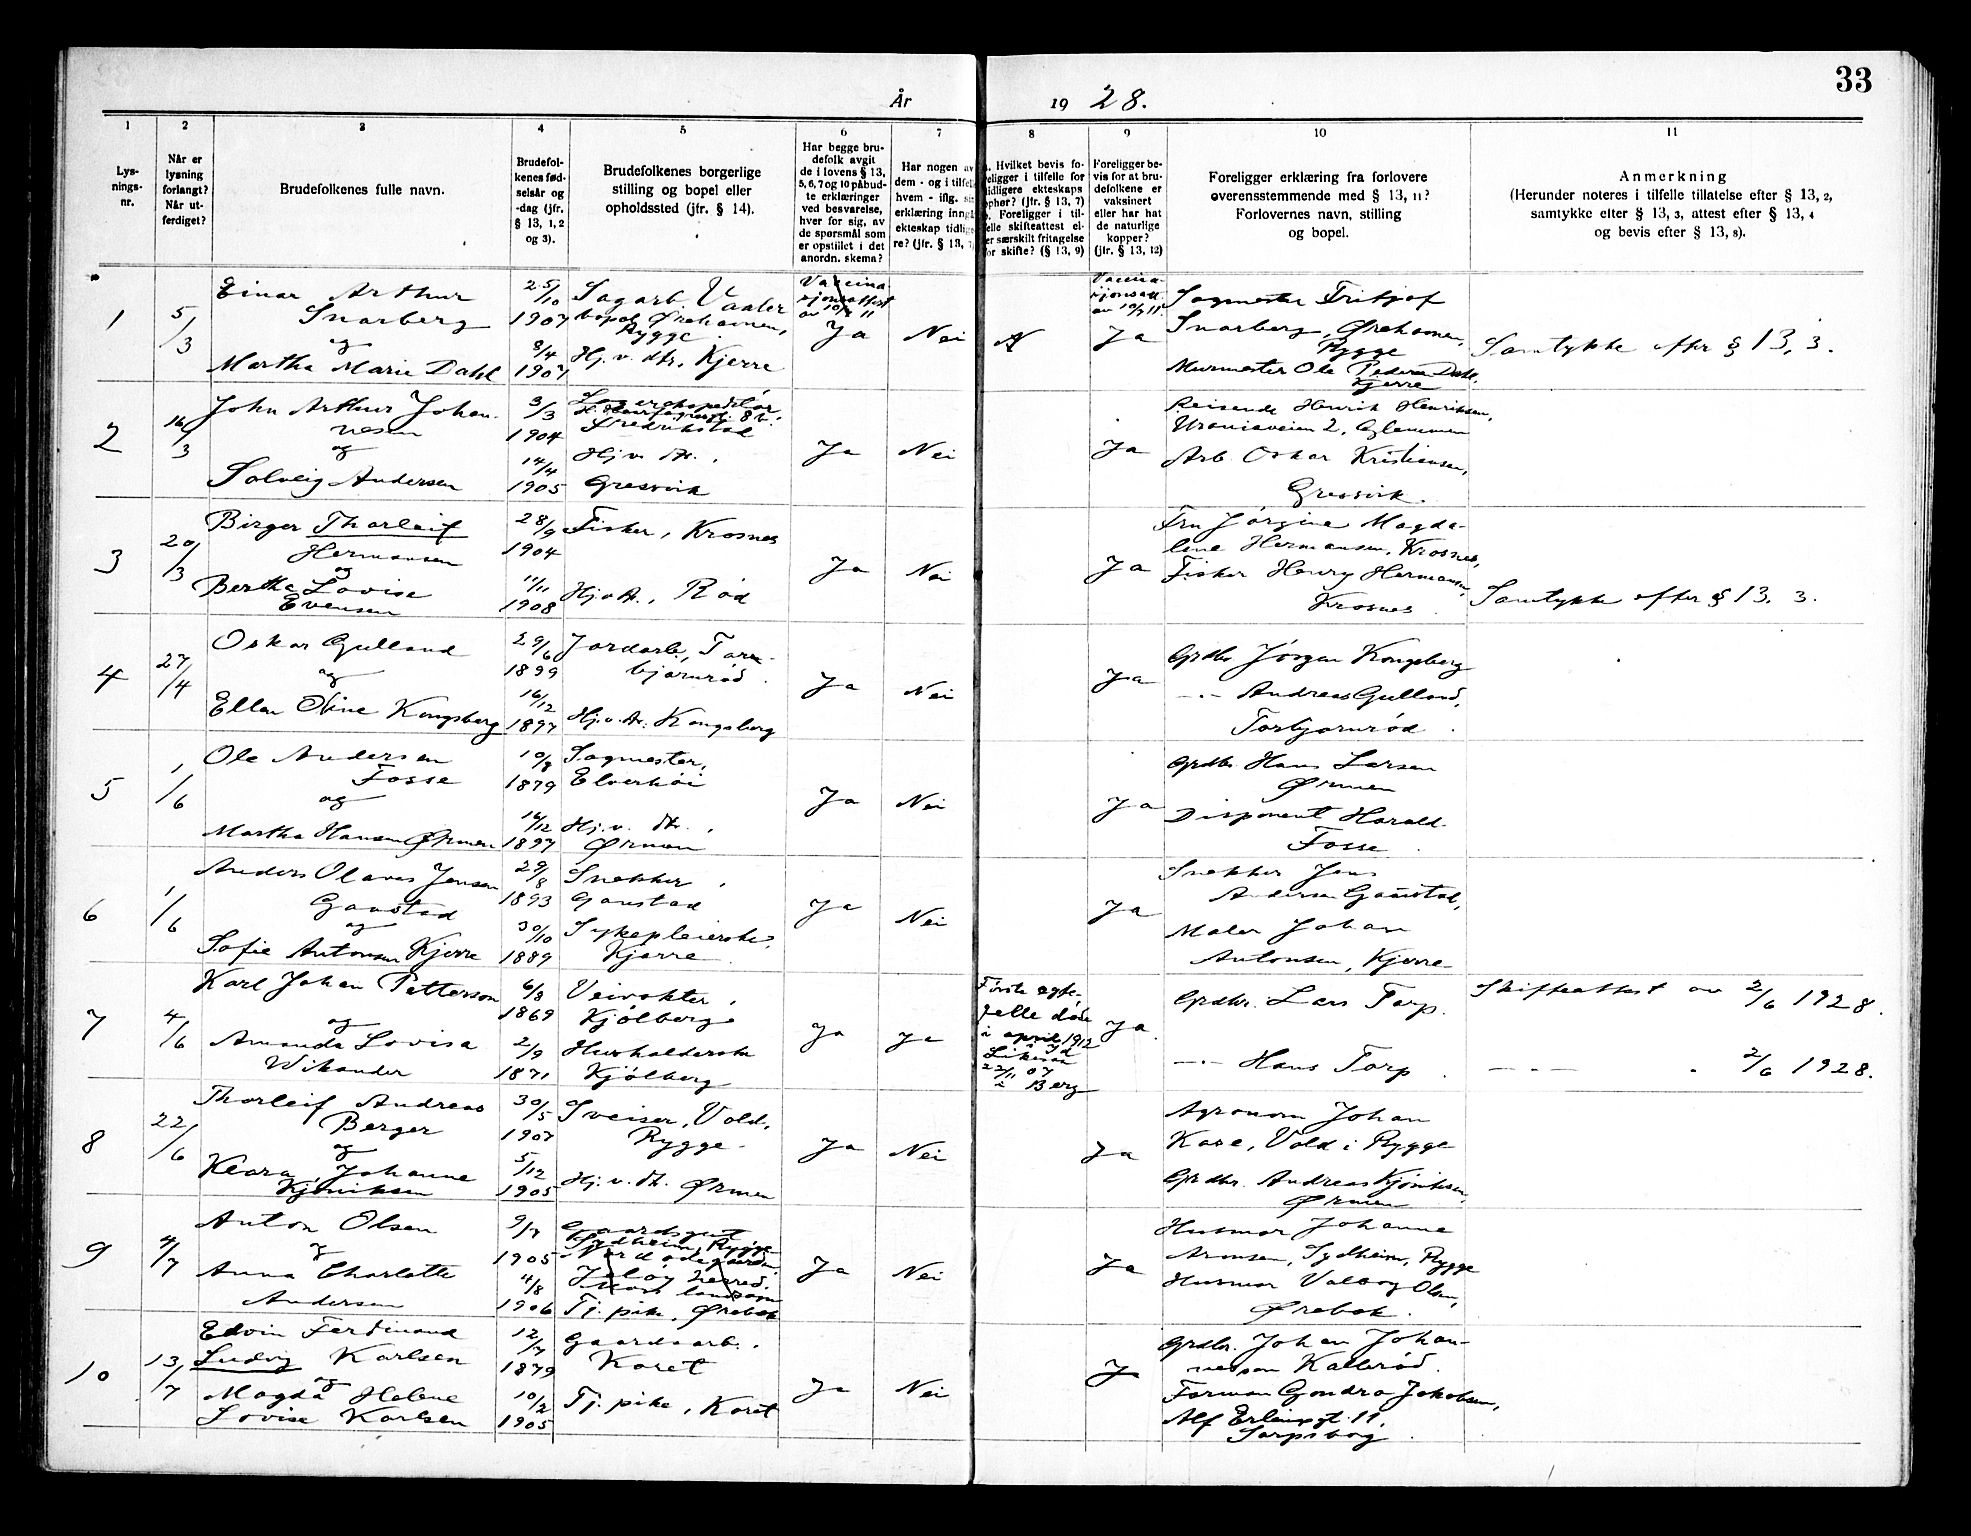 33
År 1928.
1
2
3
4
5
6
7
8
9
10
11
Lys-
nings-
nr.
Når er
lysning
forlangt?
Når ut-
ferdiget?
Brudefolkenes fulle navn.
Brudefol-
kenes fød-
selsår og
-dag (jfr.
§ 13, 1, 2
og 3).
Brudefolkenes borgerlige
stilling og bopel eller
opholdssted (jfr. § 14).
Har begge bru-
defolk avgit
de i lovens § 13,
5, 6, 7 og 10 påbud-
te erklæringer
ved besvarelse,
hver for sig, av
de spørsmål som
er opstillet i det
anordn. skema?
Har nogen av
dem - og i tilfel
hvem - iflg. si
erklæring inngå
ekteskap tidlige
re? (jfr. § 13,
. Hvilket bevis fo-
religger i tilfelle for
tidligere ekteskaps
ophør? (jfr. § 13, 7)
. Foreligger i til-
felle skifteattest el-
er særskilt fritagelse
for skifte? (§ 13, 9)
Foreligger be-
vis for at bru-
defolkene er
vaksinert
eller har hat
de naturlige
kopper?
(jfr. § 13, 12)
Foreligger erklæring fra forlovere
overensstemmende med § 13, 11?
Forlovernes navn, stilling
og bopel.
Anmerkning
(Herunder noteres i tilfelle tillatelse efter § 13, 2,
samtykke efter § 13, 3, attest efter § 13, 4
og bevis efter § 13, 8).
1
5/3
Einar Arthur
Snarberg
og
Martha Marie Dahl
25/10
1907
8/4
1907
Sagarb. Vaaler
bopel Ørehavnen,
Rygge.
Hj. v. dtr, Kjerre
Vaccina
sjonsattest
av 10/7 11
Ja
Nei
N
Vaccina-
sjonsatt
av 10/7 11
Ja
Sagmester Fritjof
Snarberg, Ørehavnen,
Rygge
Murmester Ole Pedersen Dahl,
Kjerre
Samtykke efter § 13, 3.
2
16/3
John Arthur Johan-
nesen
og
Solveig Andersen
3/3
1904
14/4
1905
Lagerekspeditør
Fredrikstad
Hj. v. dtr.,
Gresvik
Ja
Nei
Ja
Reisende Henrik Henriksen,
Uraniaveien 2, Glemmen
Arb. Oskar Kristiansen,
Gresvik.
3
20/3
Birger Thorleif
Hermansen
og
Bertha Lovise
Evensen
28/9
1904
11/11
1908
Fisker, Krosnes
Hj v dtr., Rød
Ja
Nei
Ja
Fru Jørgine Magda-
lene Hermansen, Krosnes,
Fisker Henry Hermansen,
Krosnes.
Samtykke efter § 13, 3.
4
27/4
Oskar Gulland
og
Ellen Oline Kongsberg
29/6
1899
16/12
1897
Jordarb., Torn-
bjørnrød.
Hj. v. dtr. Kongsberg
Ja
Nei
Ja
Grdbr Jørgen Kongsberg
—·— Andreas Gulland,
Torbjørnrød.
5
1/6
Ole Andersen
Fosse
og
Martha Hansen Ørmen
10/8
1879
16/12
1897
Sagmester,
Elverhøi
Hj. v. dtr.,
Ørmen
Ja
Nei
Ja
Grdbr. Hans Larsen
Ørmen
Disponent Harald
Fosse.
6
1/6
Anders Olaves Jensen
Ganstad
og
Sofie Antonsen Kjerre
29/8
1893
30/10
1889
Snekker,
Ganstad
Sykepleierske,
Kjerre.
Ja
Nei
Ja
Snekker Jens
Andersen Ganstad,
Maler Johan
Antonsen, Kjerre
7
4/6
Karl Johan Petterson
og
Amanda Lovisa
Wikander
6/8
1869
2/9
1871
Veivokter,
Kjølberg
Husholderske
Kjølberg
Ja
Ja
Første egte-
felle døde
i april 1912
22/11 07
i Berg
Ja.
Grdbr. Lars Torp.
—·— Hans Torp.
Skifteattest av 2/6 1928.
—·— . 2/6 1928.
8
22/6
Thorleif Andreas
Berger
og
Klara Johanne
Kjøniksen
30/5
1907
5/12
1905
Sveiser, Vold,
Rygge.
Hj. v. dtr. Ørmen
Ja
Nei
Ja
Agronom Johan
Kare, Vold i Rygge
Grdbr. Andreas Kjøniksen,
Ørmen
9
4/7
Anton Olsen
og
Anna Charlotte
Andersen
9/7
1905
4/8
1906
Gaardsgut
Sydheim, Rygge
Jeløy herred,
Tj. pike, Ørebek
Ja
Nei
Ja
Husmor Johanne
Aronsen, Sydheim, Rygge
Husmor Valborg Olsen,
Ørebek.
10
13/7
Edvin Ferdinand
Ludvig Karlsen
og
Magda Helene
Lovise Karlsen
12/7
1879
10/2
1905
Gaardsarb.,
Karet
Tj. pike, Karet
Ja
Nei
J
Grdbr. Johan Johan-
nessen Kallerød.
Formann Gondro Jakobsen,
Alf Erlingsgt. 11,
Sarpsborg.